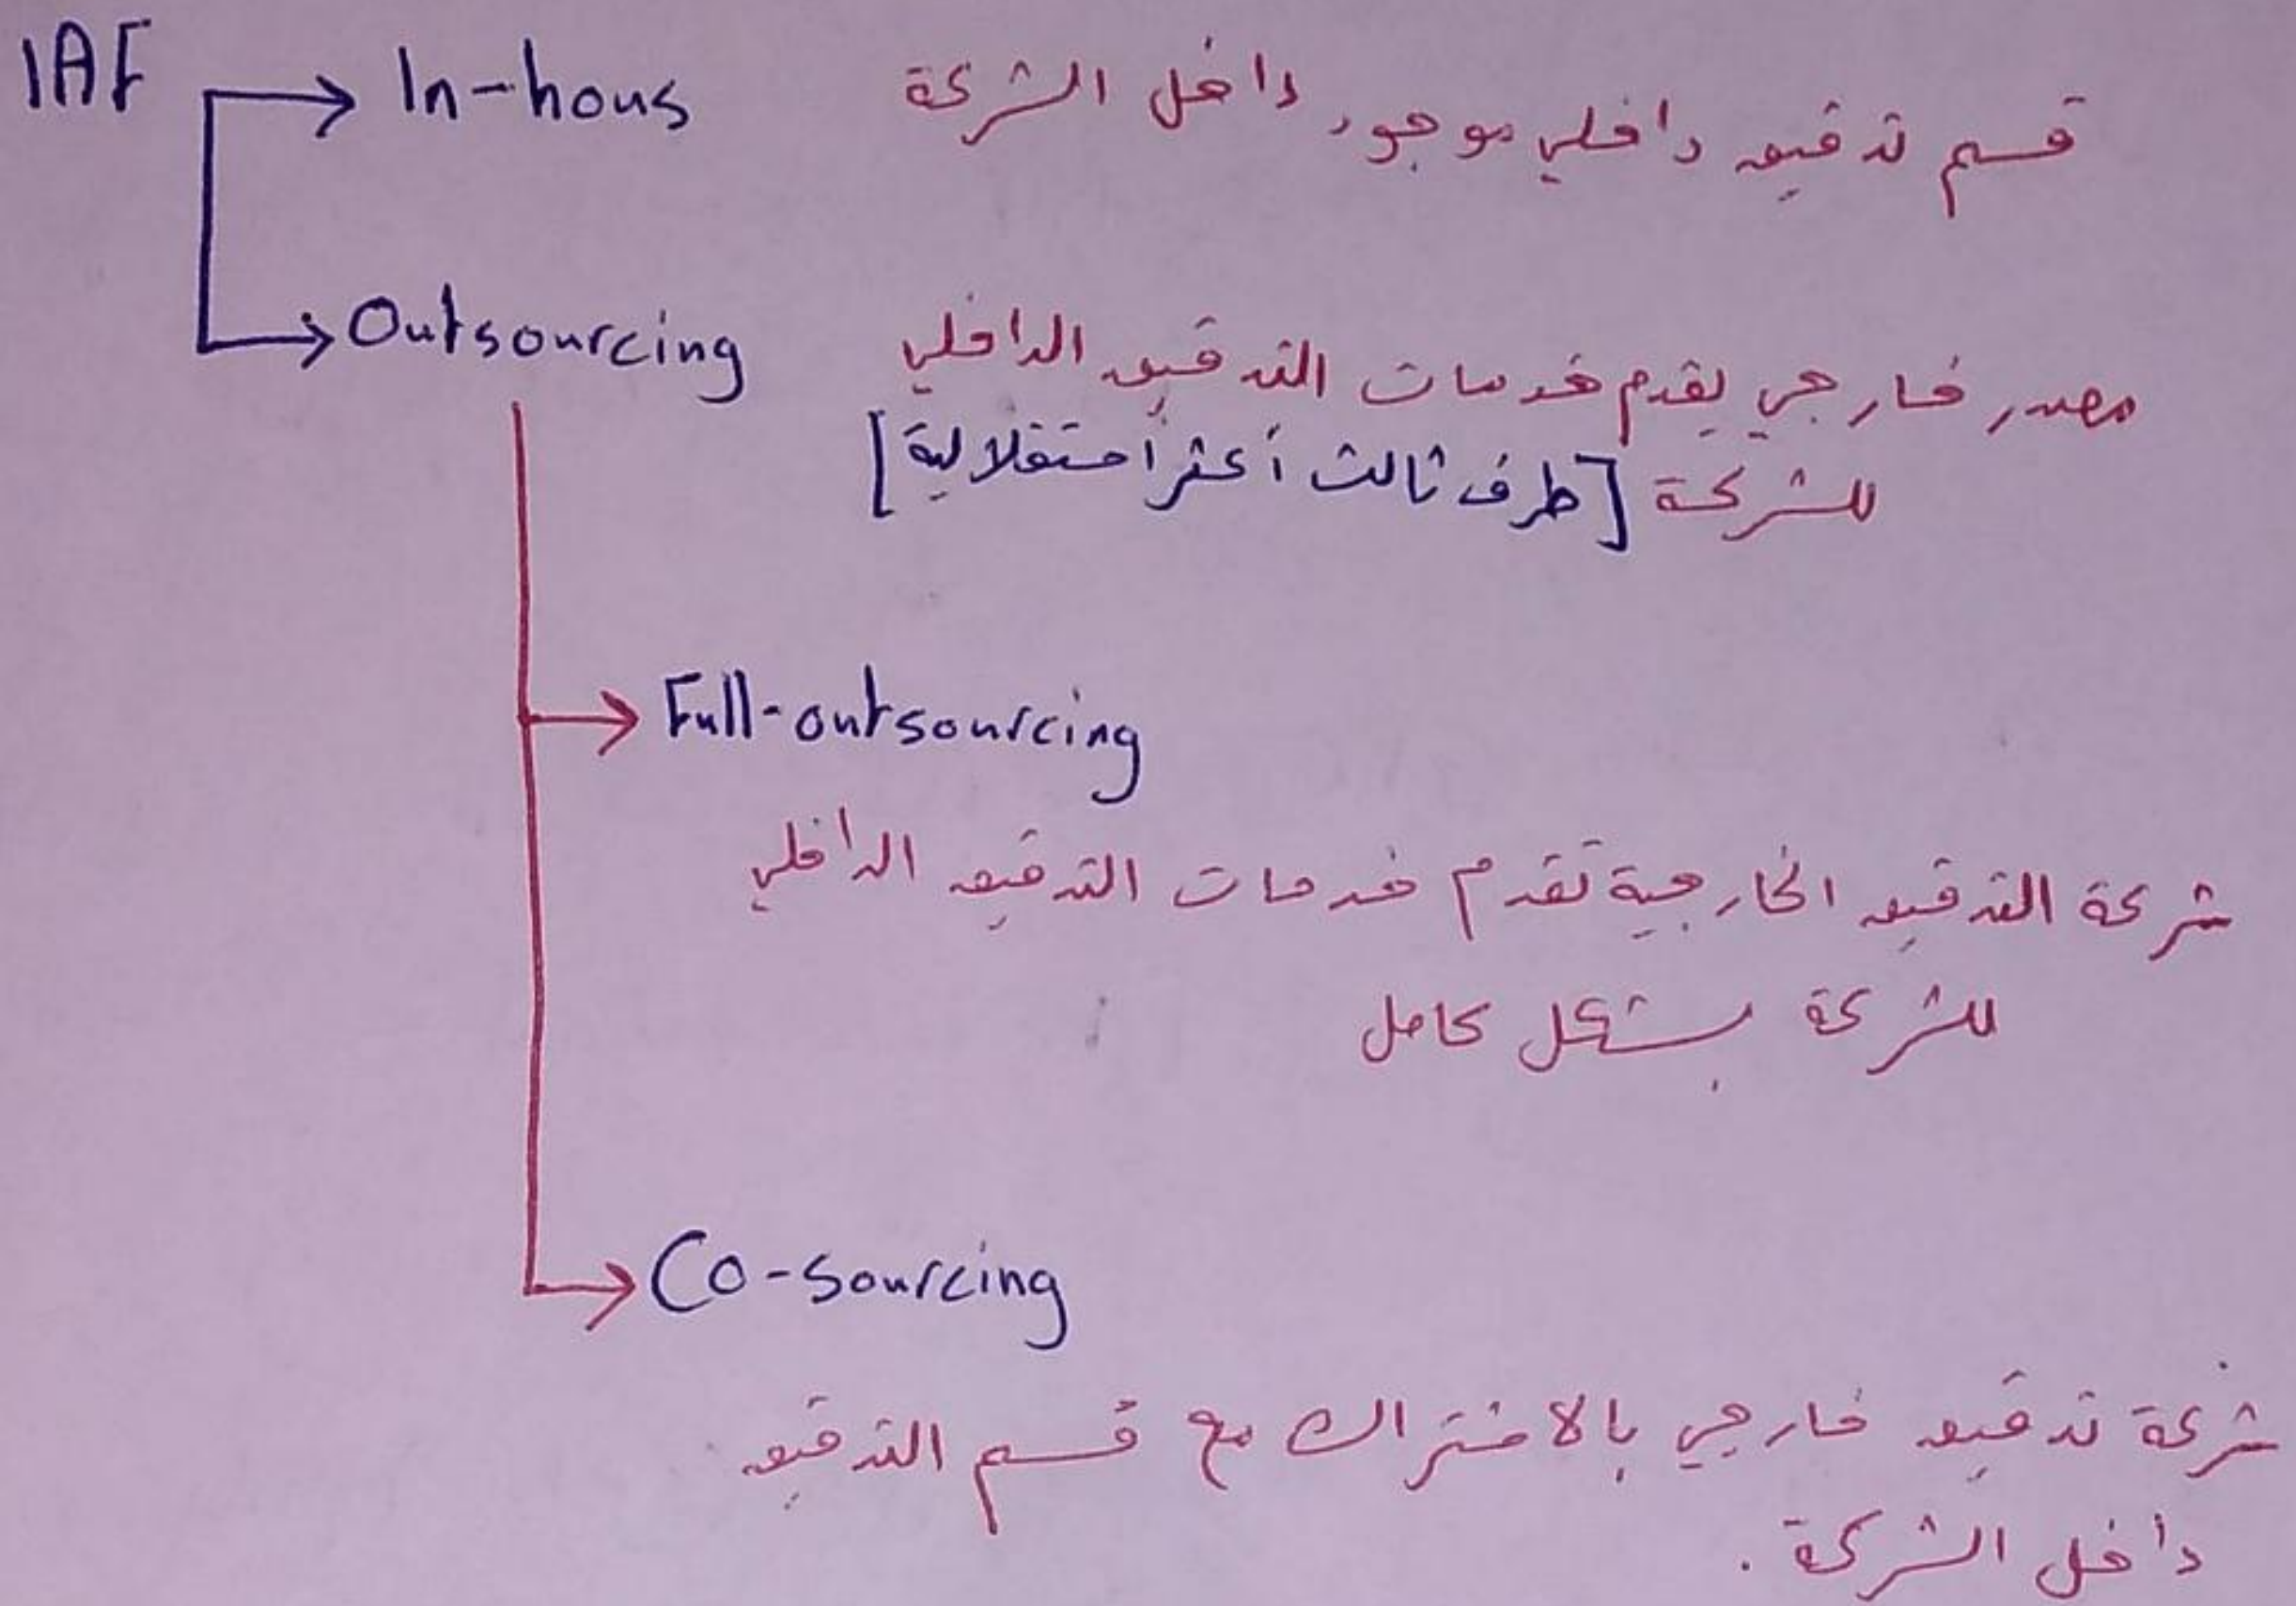 IAF
In-hous قسم تدقيق داخلي موجود داخل الشركة
Outsourcing مصدر خارجي يقدم خدمات التدقيق الداخلي
للشركة [طرف ثالث أكثر استقلالية]
Full-outsourcing
شركة التدقيق الخارجية تقدم خدمات التدقيق الداخلي
للشركة بشكل كامل
Co-sourcing
شركة تدقيق خارجي بالاشتراك مع قسم التدقيق
داخل الشركة.